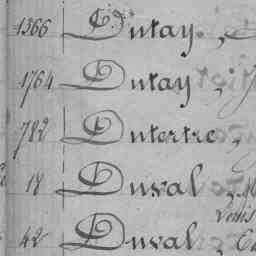 1366 Dutay,
1764 Dutay,
782 Dutertre,
18 Duval,
42 Duval,